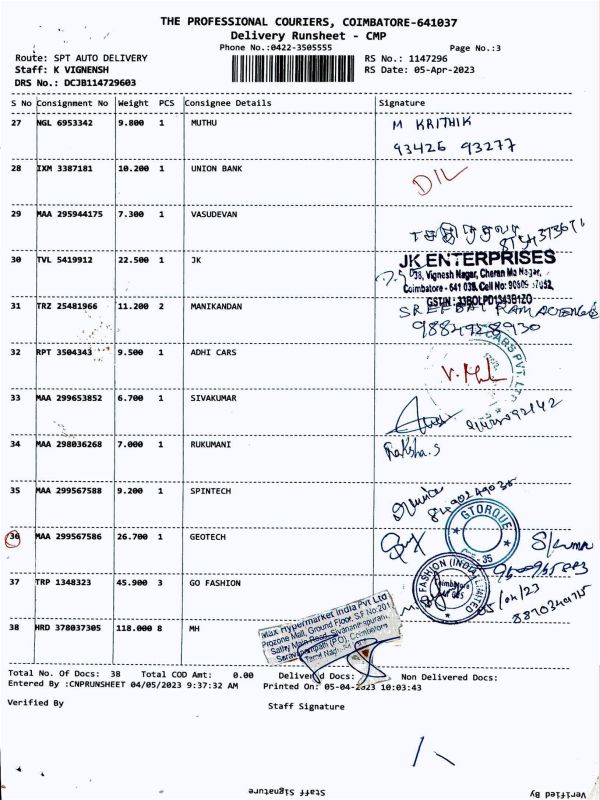 THE PROFESSIONAL COURIERS, COIMBATORE-641037
Delivery Runsheet - CMP
Phone No.:0422-3505555 Page No.:3
Route: SPT AUTO DELIVERY RS No.: 1147296
Staff: K VIGNENSH RS Date: 05-Apr-2023
DRS No.: DCJB114729603
S No Consignment No Weight PCS Consignee Details Signature
27 NGL 6953342 9.800 1 MUTHU M KRITHIK
93426 93277
28 IXM 3387181 10.200 1 UNION BANK DIL
29 MAA 295944175 7.300 1 VASUDEVAN
30 TVL 5419912 22.500 1 JK JK ENTERPRISES
38, Vignesh Nagar, Cheran Ma Nagar,
Coimbatore - 641 035. Cell No: 90809 57052
GSTIN : 33BOLPD1343B1ZO
31 TRZ 25481966 11.200 2 MANIKANDAN
32 RPT 3504343 9.500 1 ADHI CARS CARS PVT. LTD
33 MAA 299653852 6.700 1 SIVAKUMAR
34 MAA 298036268 7.000 1 RUKUMANI Raksha.S
35 MAA 299567588 9.200 1 SPINTECH
36 MAA 299567586 26.700 1 GEOTECH GTORQUE
37 TRP 1348323 45.900 3 GO FASHION FASHION (INDIA) LIMITED
Coimbatore
05/04/23
38 HRD 378037305 118.000 8 MH Max Hypermarket India Pvt Ltd
Prozone Mall, Ground Floor, S.F No:201
Sathy Main Road, Sivananthapuram,
Saravanampatti (PO), Coimbatore
Total No. Of Docs: 38 Total COD Amt: 0.00 Delivered Docs: Non Delivered Docs:
Entered By :CNPRUNSHEET 04/05/2023 9:37:32 AM Printed On: 05-04-2023 10:03:43
Verified By Staff Signature
Staff Signature Verified By